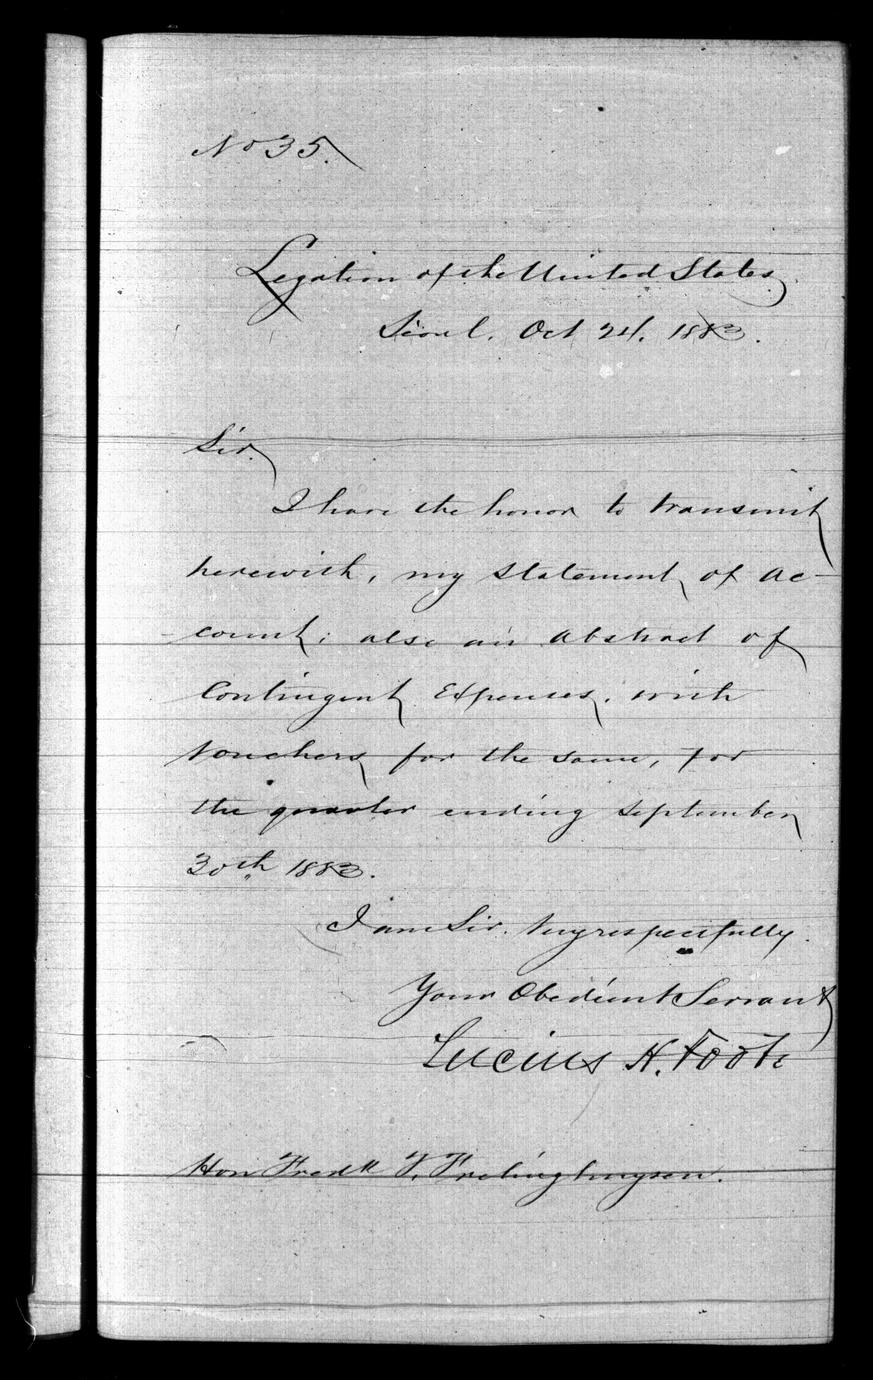 No 35.
Legation of the United States.
Seoul. Oct 24. 1883.
Sir.
I have the honor to transmit
herewith, my statement of Ac-
count; also an Abstract of
Contingent Expenses, with
vouchers for the same, for
the quarter ending September
30th 1883.
I am Sir. Very respectfully.
Your Obedient Servant
Lucius H. Foote
Hon Fredk T. Frelinghuysen.